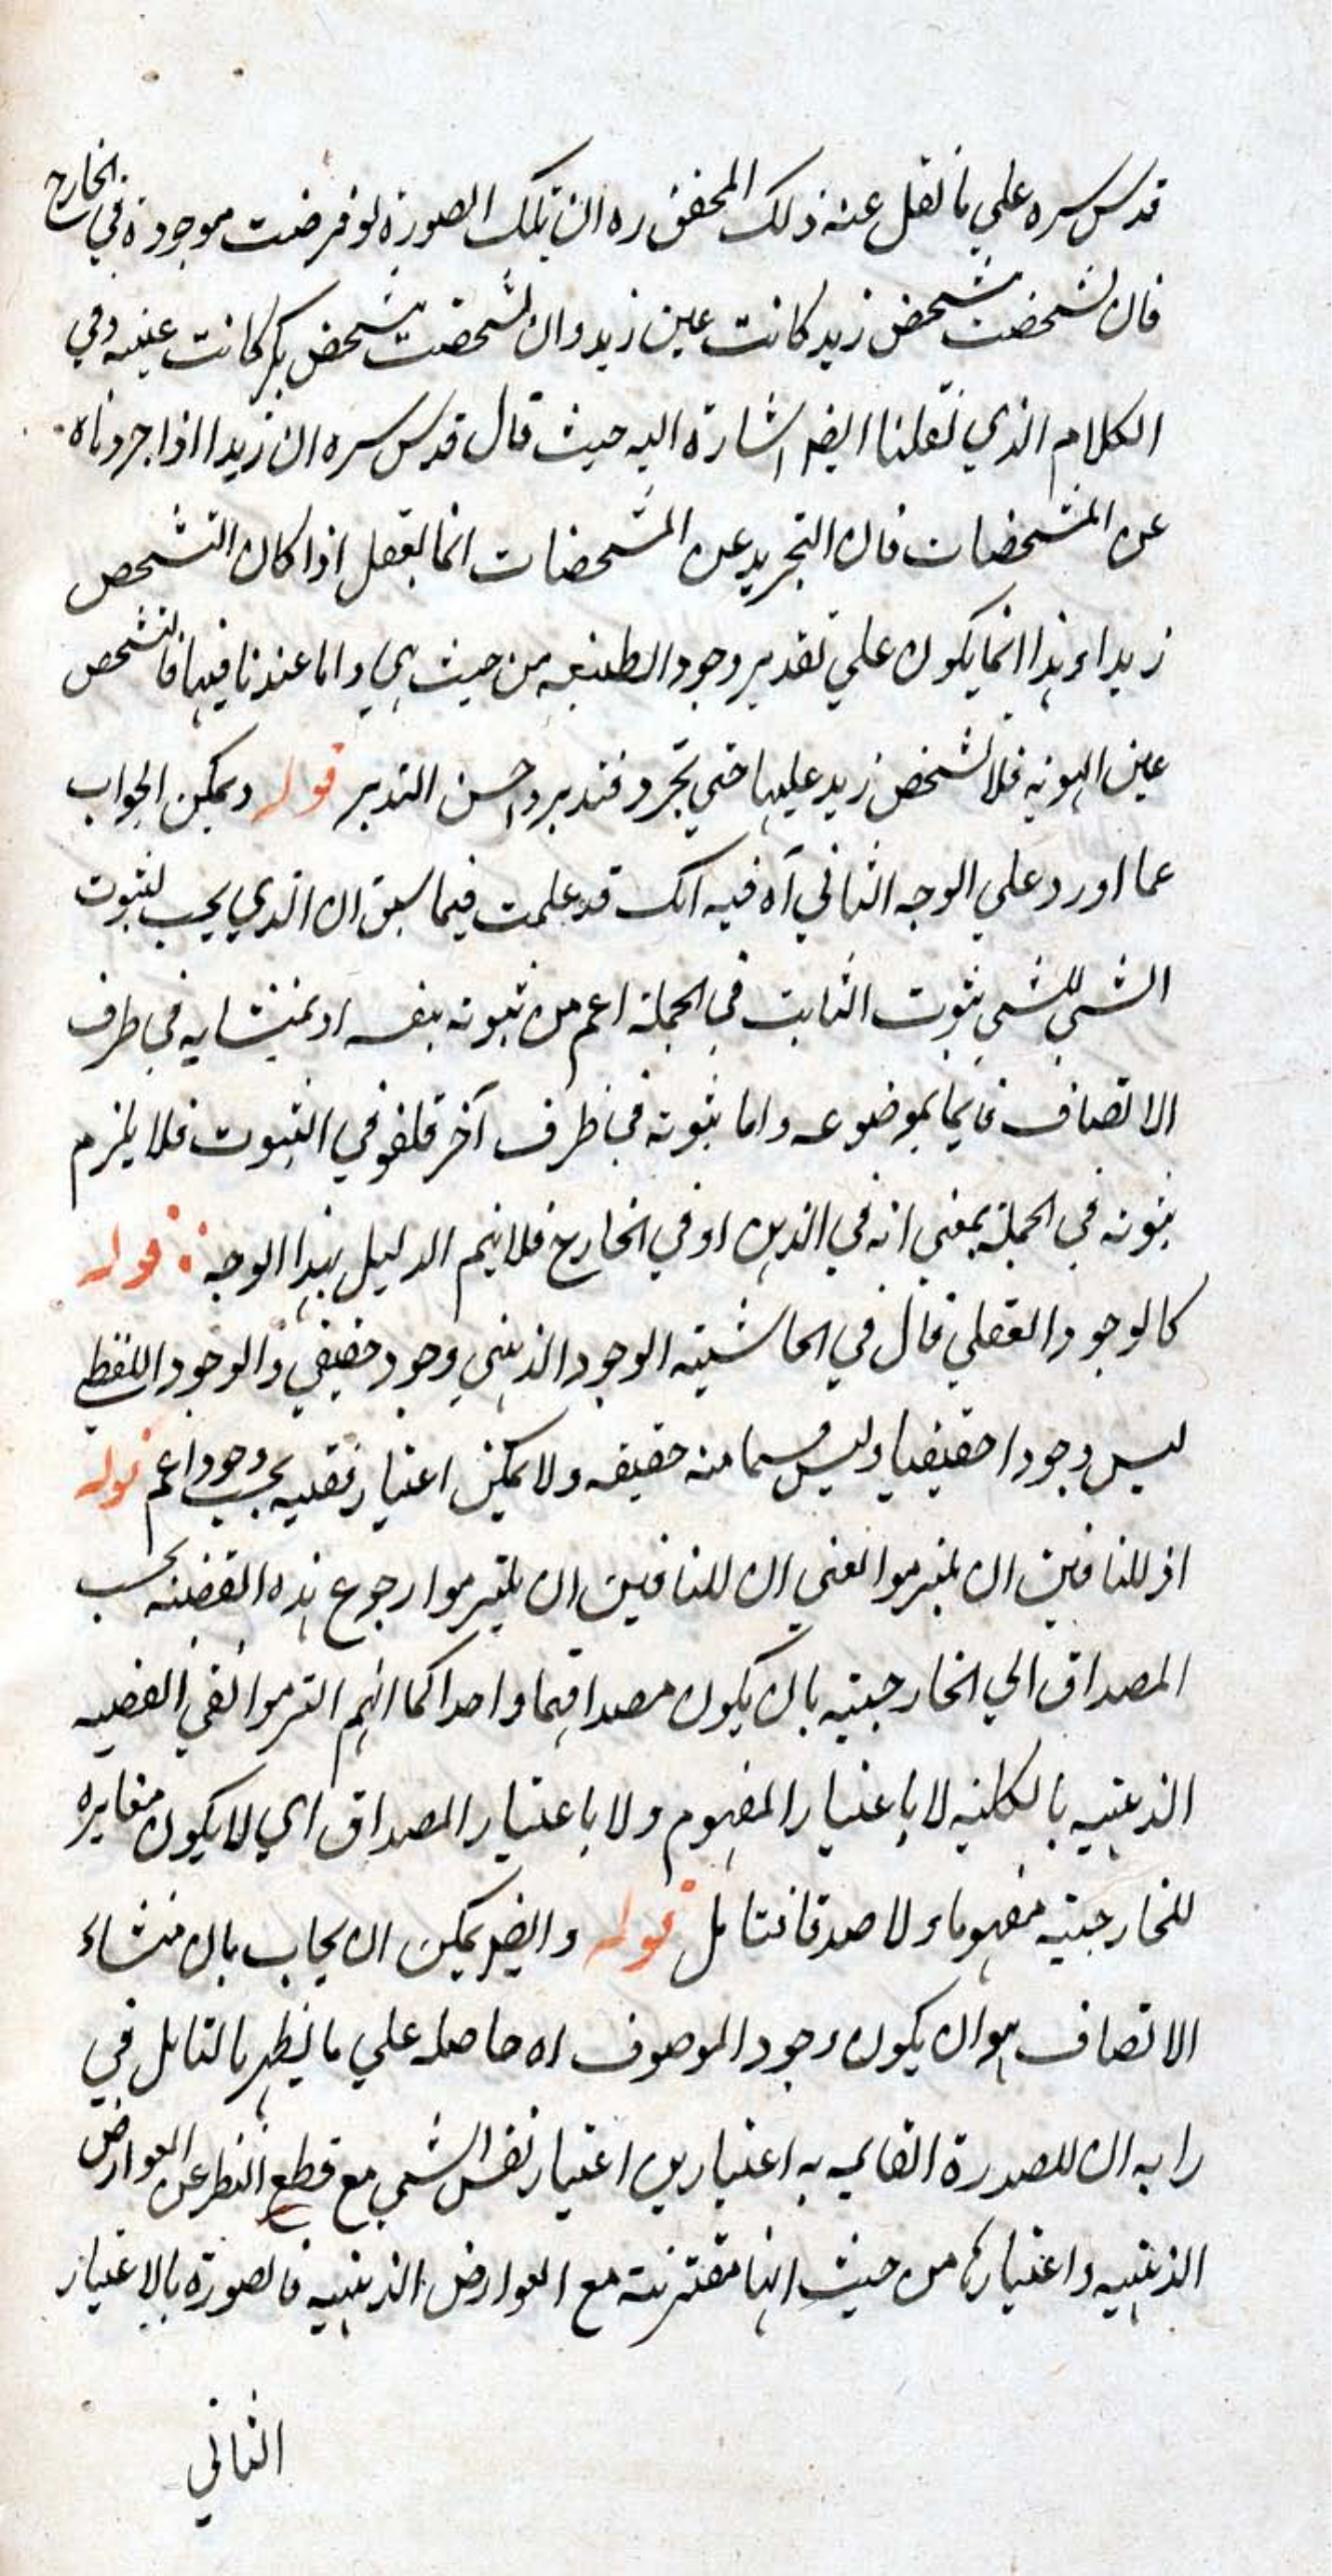 قدس سره علي ما نقل عنه ذلك المحقق ره ان تلك الصورة لو فرضت موجودة في الخارج
فان تشخصت بتشخص زيد كانت عين زيد وان تشخصت بتشخص بكر كانت عينه وفي
الكلام الذي نقلنا ايضا اشارة اليه حيث قال قدس سره ان زيدا اذا جردناه
عن المشخصات فان التجريد عن المشخصات انما يعقل اذا كان التشخص
زيدا وهذا انما يكون علي تقدير وجود الطبيعه من حيث هي واما عندنا فيها فالتشخص
عين الهويه فلا تشخص زيد عليها حتي تجرد فتدبر واحسن التدبر قوله ويمكن الجواب
عما اورد علي الوجه الثاني آه فيه انك قد علمت فيما سبق ان الذي يجب لثبوت
الشي للشي ثبوت الثابت في الجملة اعم من ثبوته بنفسه او بمنشايه في ظرف
الاتصاف قايما بموضوعه واما ثبوته في ظرف آخر فلغو في الثبوت فلا يلزم
ثبوته في الجملة بمعني انه في الذهن او في الخارج فلا يتم الدليل بهذا الوجه قوله
كالوجود العقلي قال في الحاشيته الوجود الذهني وجود حقيقي والوجود اللفظي
ليس وجودا حقيقيا وليس قسما منه حقيقه ولا يمكن اعتبار نفسه بحسب وجود اعم قوله
اذ للنافين ان يلتزموا يعني ان للنافين ان يلتزموا رجوع هذه القضيه بحسب
المصداق الي الخارجيته بان يكون مصداقهما واحدا كما انهم التزموا نفي القضيه
الذهنيه بالكليه لا باعتبار المفهوم ولا باعتبار المصداق اي لا يكون مغايره
للخارجيته مفهوما ولا صدقا فتامل قوله وايضا يمكن ان يجاب بان منشاء
الاتصاف هو ان يكون وجود الموصوف اه حاصله علي ما يظهر بالتامل في
را به ان للصورة القايمه به اعتبارين اعتبار نفس الشي مع قطع النظر عن العوارض
الذهنيه واعتبارها من حيث انها مقترنة مع العوارض الذهنيه فالصورة بالاعتبار
الثاني